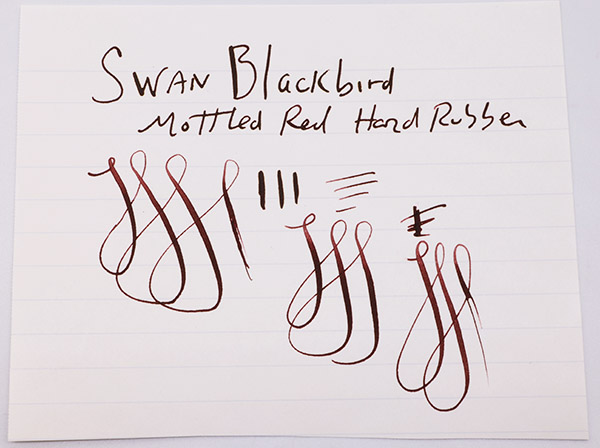 Swan Blackbird
Mottled Red Hard Rubber